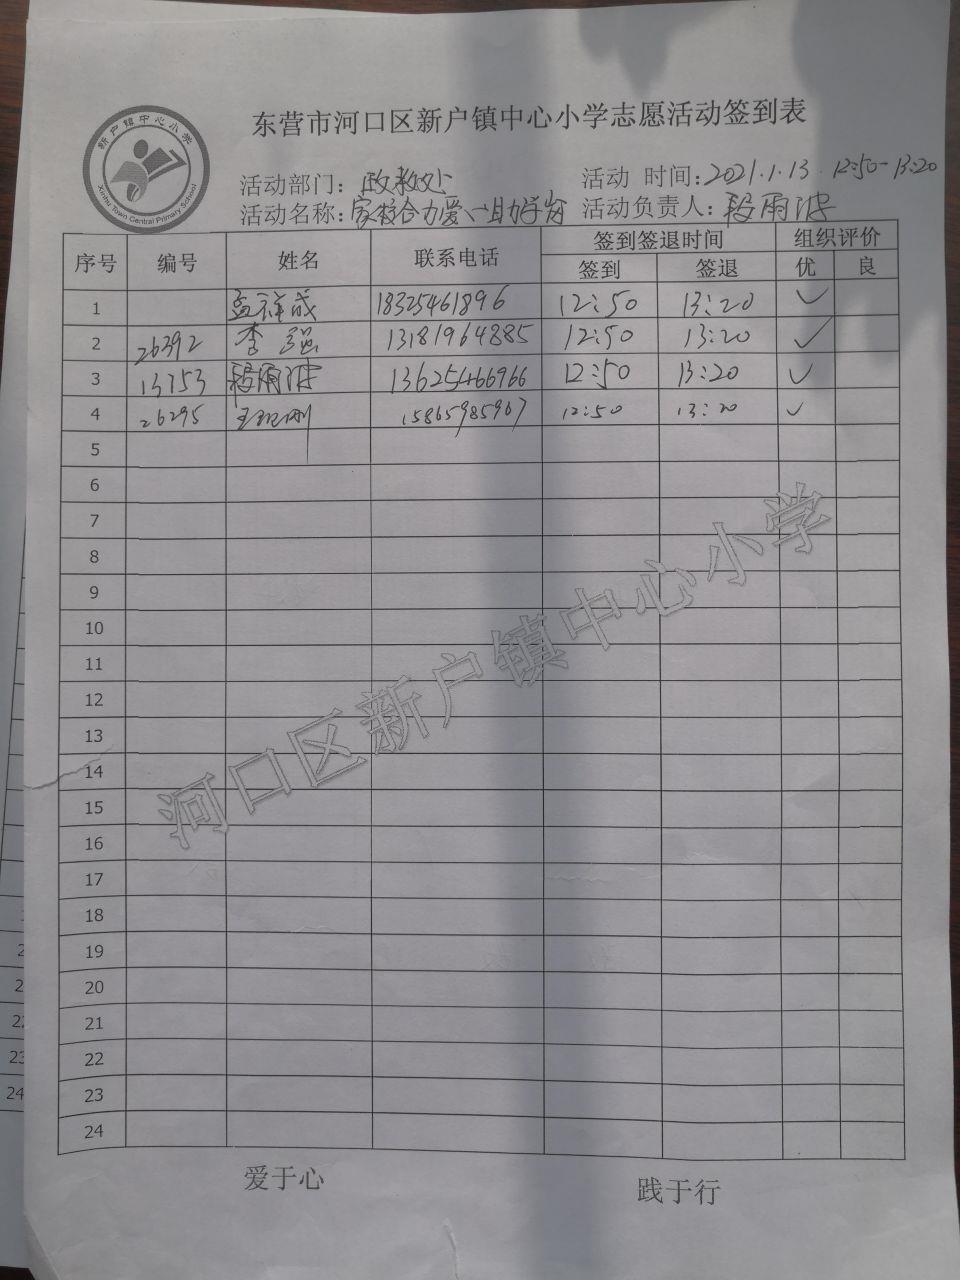 东营市河口区新户镇中心小学志愿活动签到表
新户镇中心小学
Xinhu Town Central Primary School
活动部门：政教处 活动 时间：2021.1.13 12:50-13:20
活动名称：家校合力爱心助学岗 活动负责人：段雨洪
序号 编号 姓名 联系电话 签到签退时间 组织评价
签到 签退 优 良
1 孟祥成 18325461896 12:50 13:20 ✓
2 26392 李强 13181964885 12:50 13:20 ✓
3 13753 段雨洪 13625466966 12:50 13:20 ✓
4 26295 15865985967 12:50 13:20 ✓
5
6
7
8
9
10
11
12
13
14
15
16
17
18
19
20
21
22
23
24
河口区新户镇中心小学
爱于心 践于行